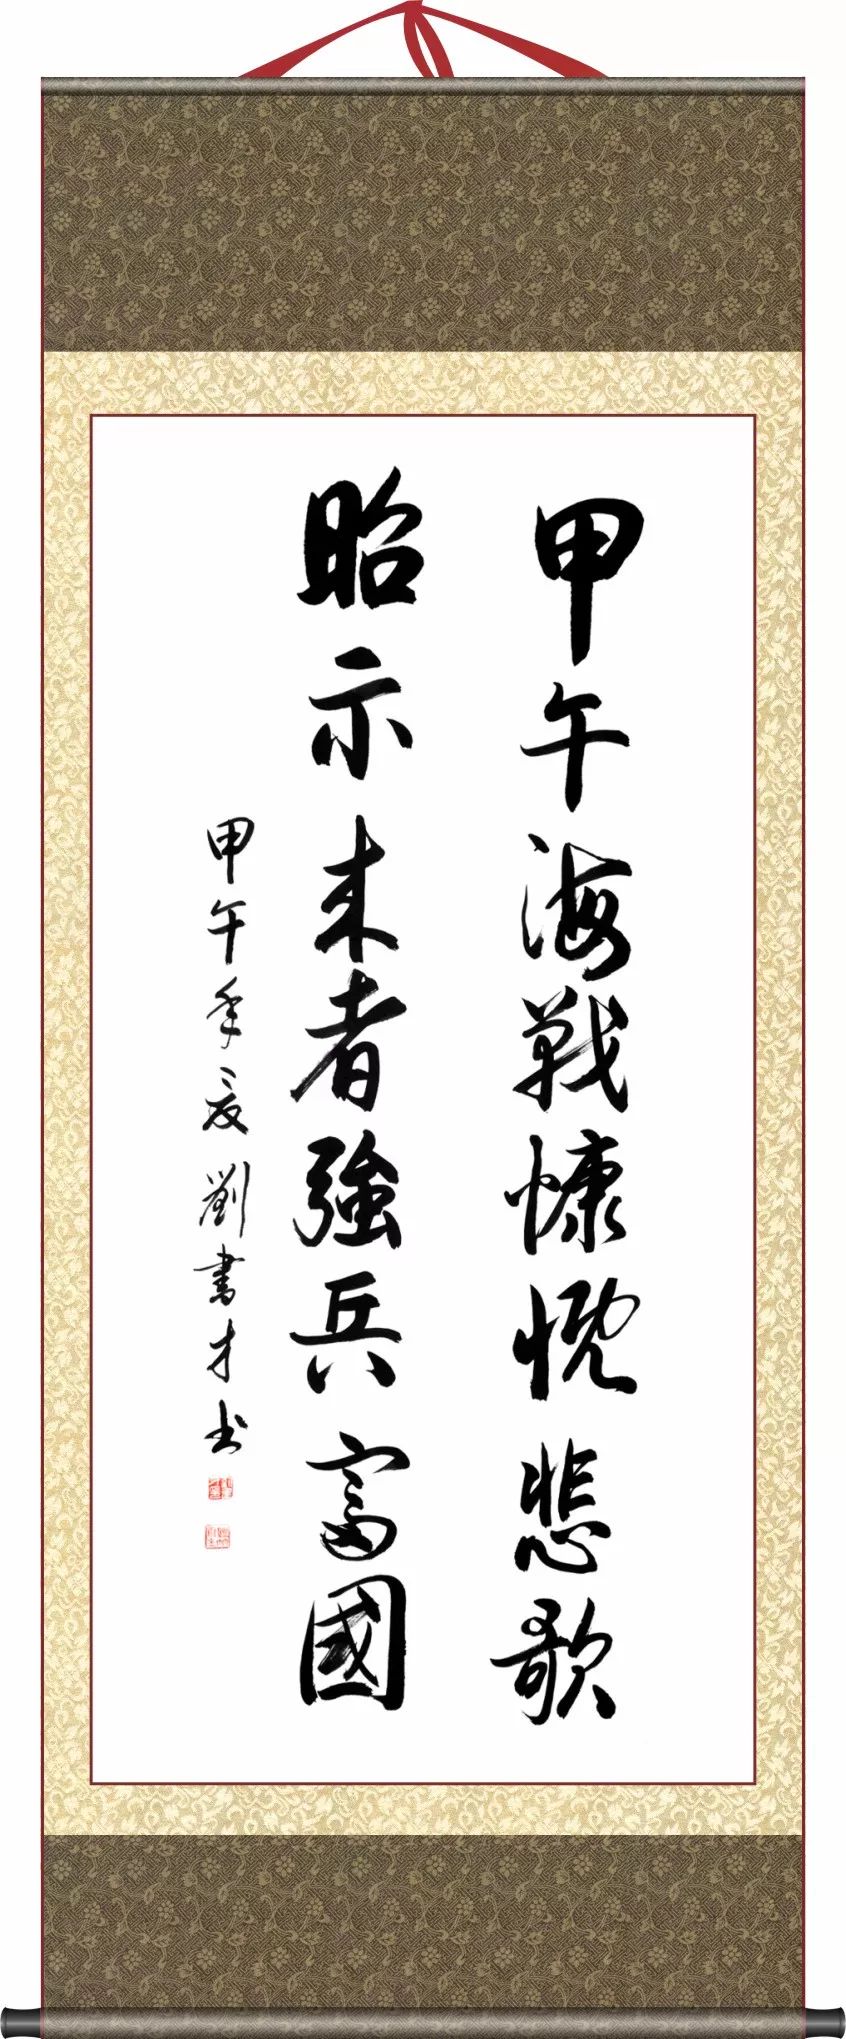 甲午海戰慷慨悲歌
昭示来者強兵富國
甲午年夏劉書才书